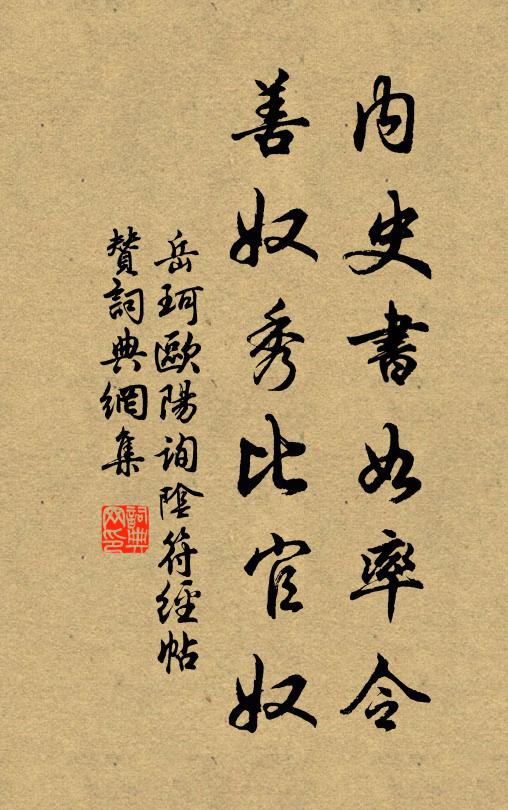 內史書如率令
善奴秀比官奴
岳珂歐陽詢陰符經帖
贊詞典網集
詞典網印